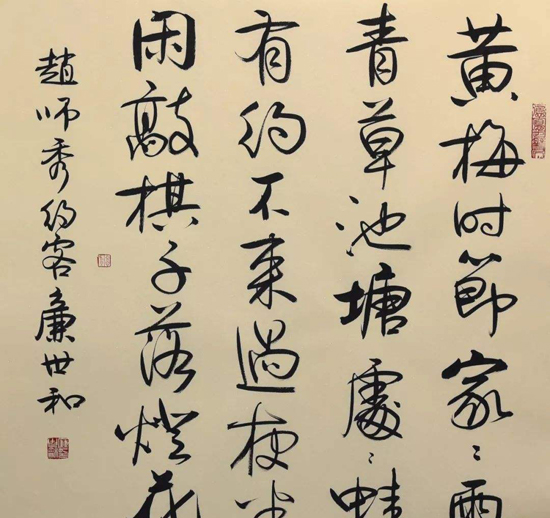 黄梅时節家〻雨
青草池塘處〻蛙
有约不来過夜半
闲敲棋子落燈花
趙师秀约客廉世和